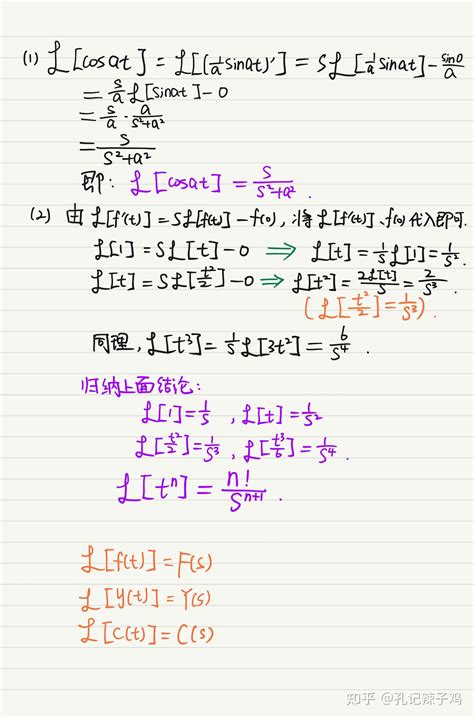 (1) ℒ[cosat] = ℒ[(1/a sinat)'] = Sℒ[1/a sinat] - sin0/a
= s/a ℒ[sinat] - 0
= s/a · a/(s²+a²)
= s/(s²+a²)
即: ℒ[cosat] = s/(s²+a²).
(2) 由 ℒ[f'(t)] = Sℒ[f(t)] - f(0), 将 ℒ[f'(t)]、f(0)代入即可.
ℒ[1] = Sℒ[t] - 0 ⟹ ℒ[t] = 1/s ℒ[1] = 1/s².
ℒ[t] = Sℒ[t²/2] - 0 ⟹ ℒ[t²] = 2ℒ[t]/s = 2/s³.
(ℒ[t²/2] = 1/s³).
同理, ℒ[t³] = 1/s ℒ[3t²] = 6/s⁴.
归纳上面结论:
ℒ[1] = 1/s , ℒ[t] = 1/s²
ℒ[t²/2] = 1/s³ , ℒ[t³/6] = 1/s⁴.
ℒ[tⁿ] = n!/sⁿ⁺¹.
ℒ[f(t)] = F(s)
ℒ[y(t)] = Y(s)
ℒ[c(t)] = C(s)
知乎 @孔记辣子鸡